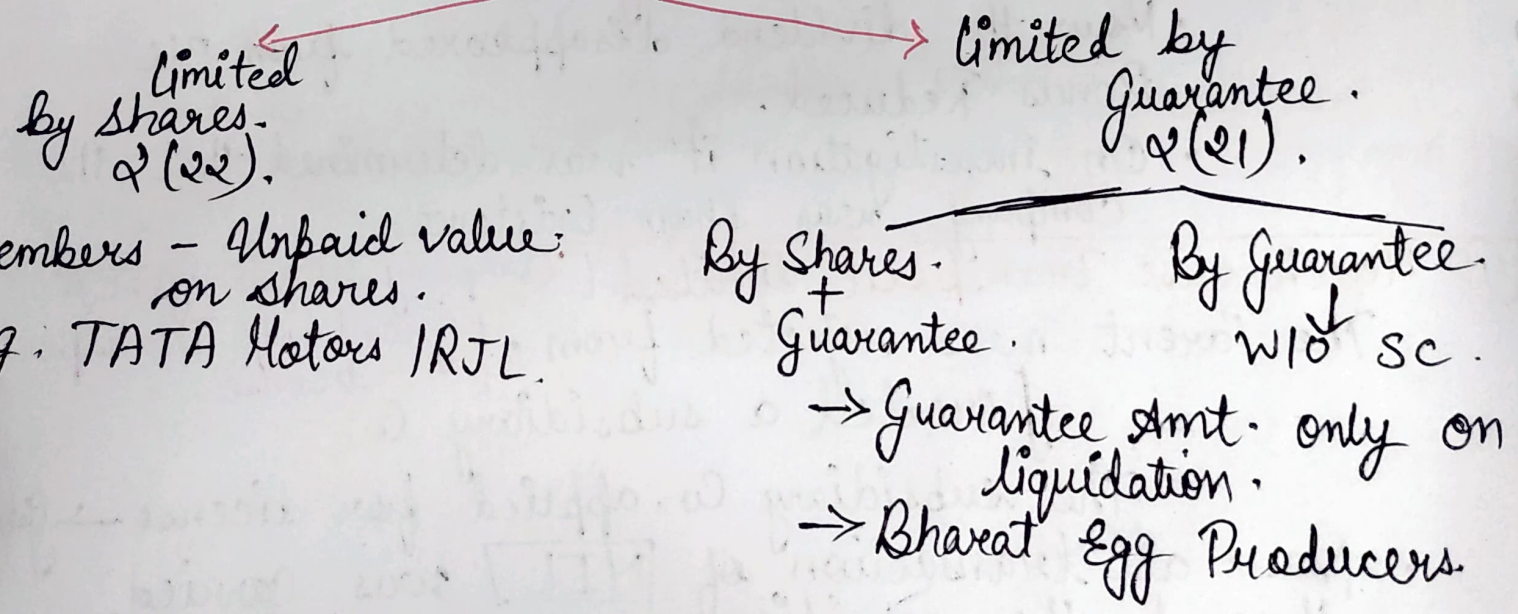 Limited
by shares.
2(22).
embers - Unpaid value:
on shares.
g. TATA Motors /RJL.
Limited by
Guarantee.
2(21).
By Shares.
+
Guarantee.
By Guarantee.
W/O SC.
→ Guarantee Amt. only on
liquidation.
→ Bharat Egg Producers.